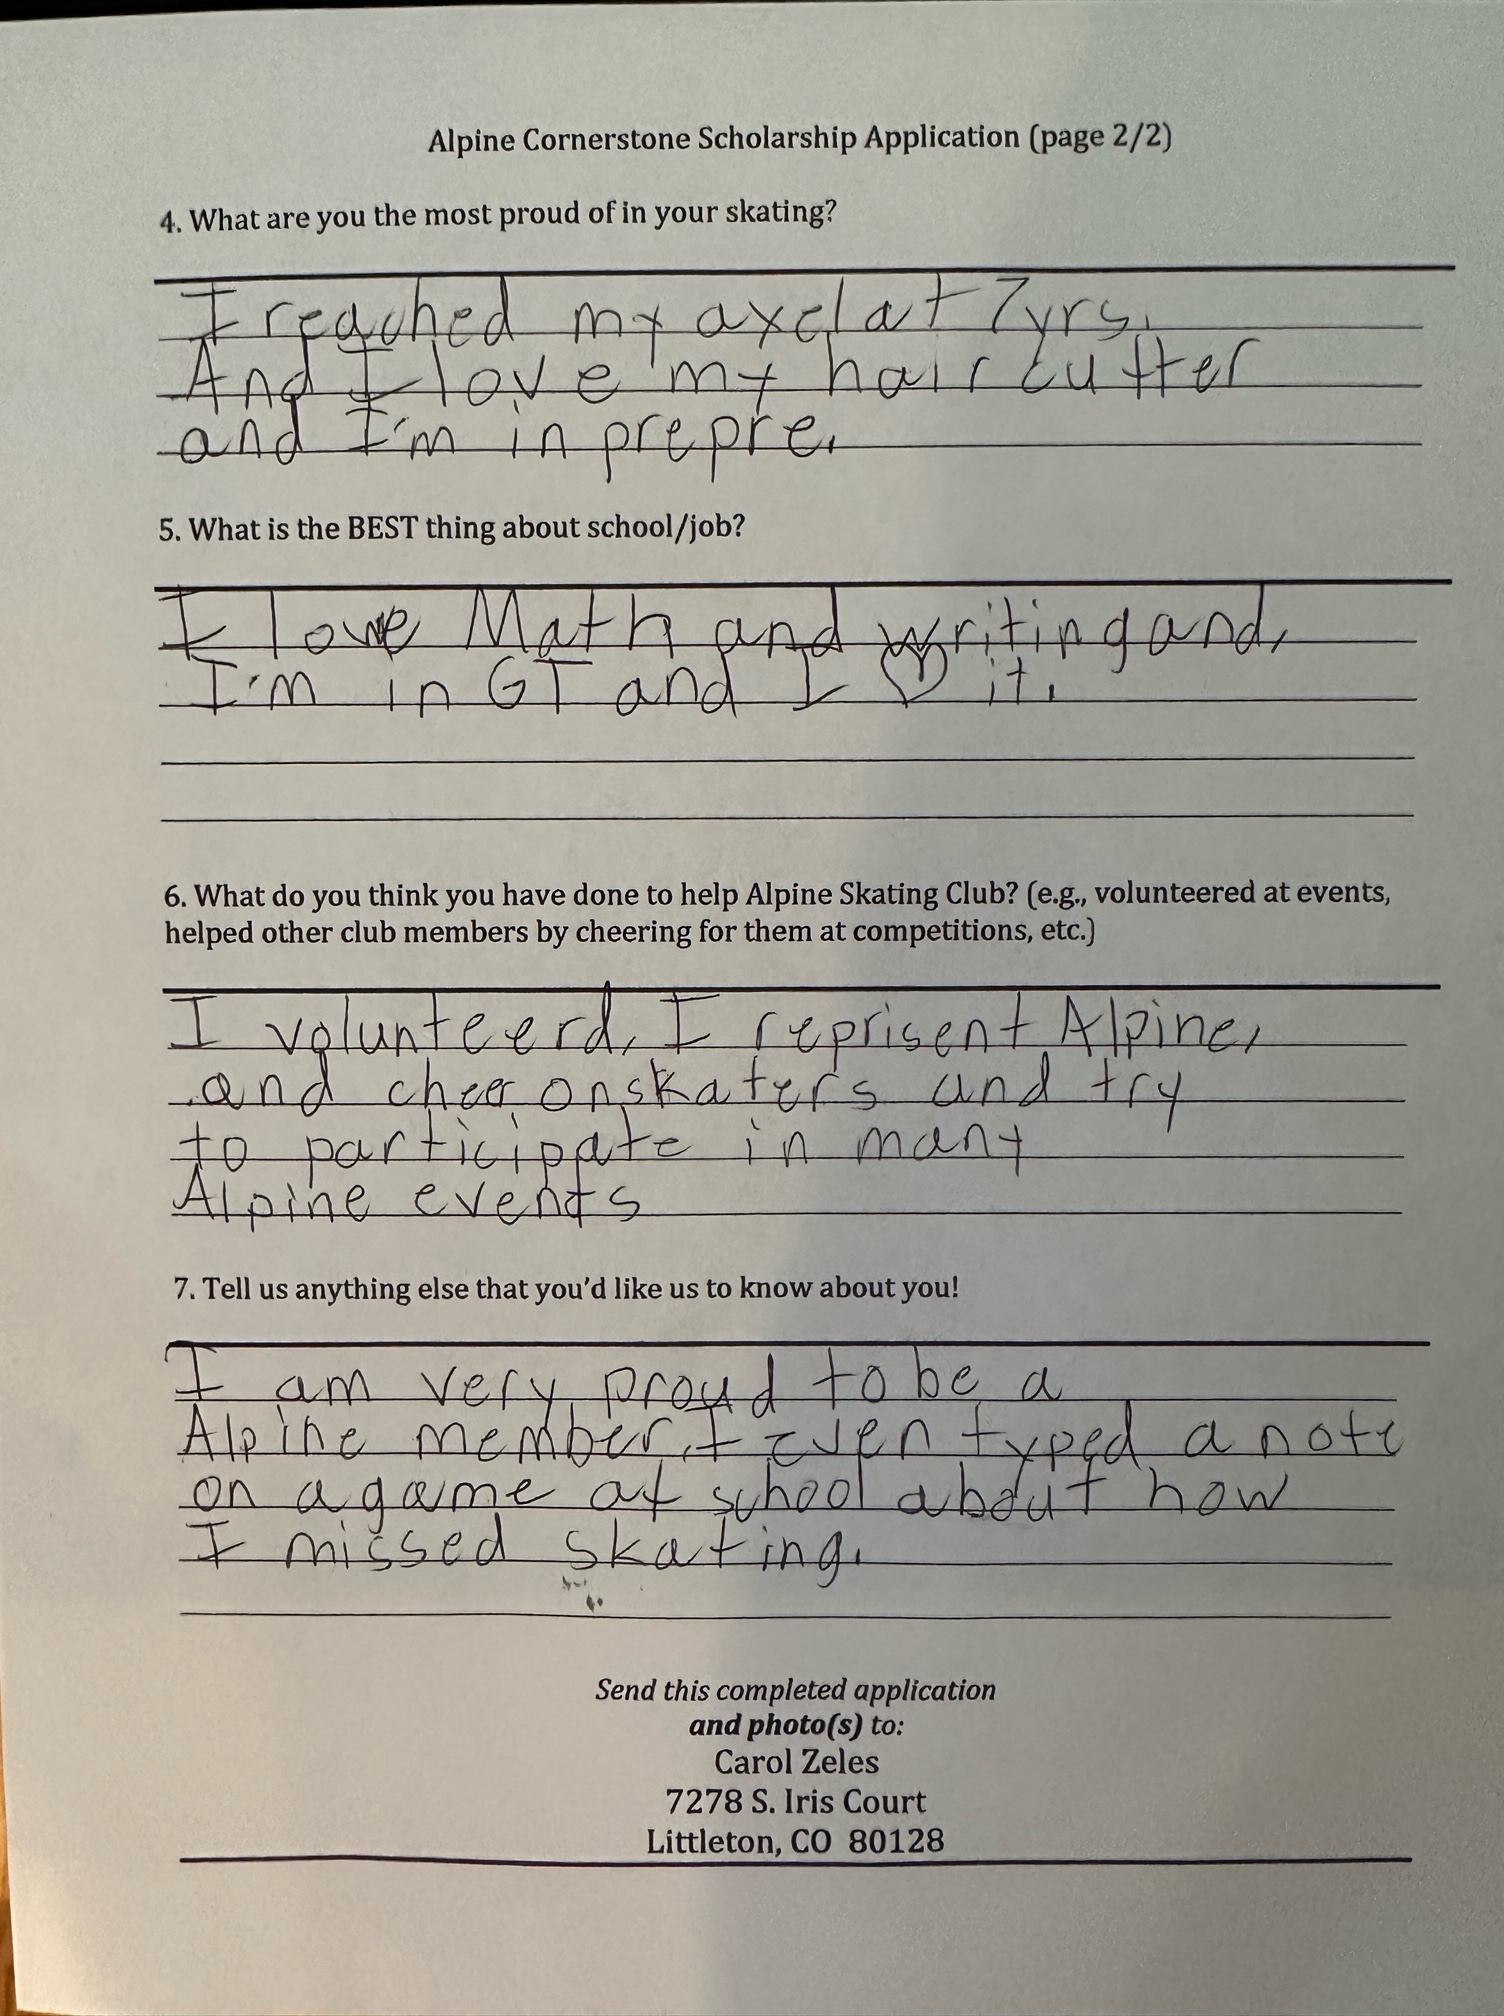 Alpine Cornerstone Scholarship Application (page 2/2)
4. What are you the most proud of in your skating?
I reached my axel at 7yrs.
And I love my haircutter
and I'm in prepre.
5. What is the BEST thing about school/job?
I love Math and writing and,
I'm in GT and I ♡ it.
6. What do you think you have done to help Alpine Skating Club? (e.g., volunteered at events,
helped other club members by cheering for them at competitions, etc.)
I volunteerd, I reprisent Alpine,
and cheer on skaters and try
to participate in many
Alpine events
7. Tell us anything else that you'd like us to know about you!
I am very proud to be a
Alpine member. I even typed a note
on a game at school about how
I missed skating.
Send this completed application
and photo(s) to:
Carol Zeles
7278 S. Iris Court
Littleton, CO 80128